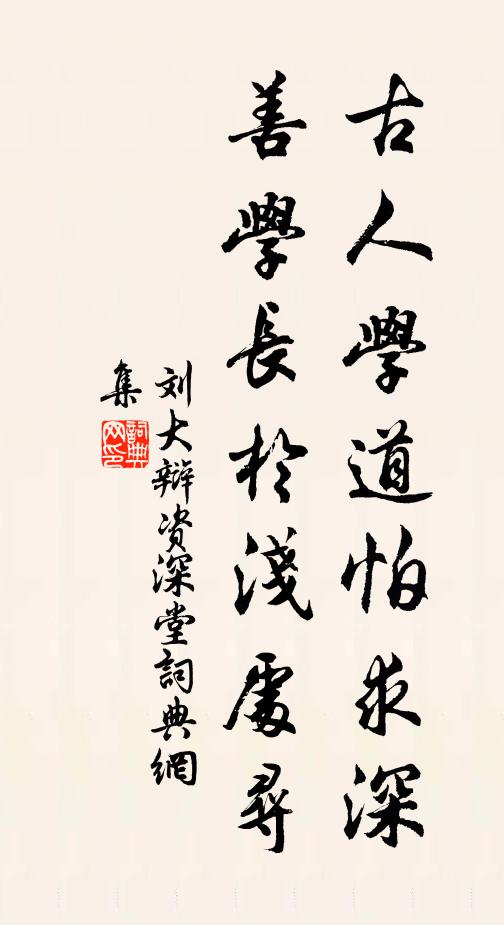 古人學道怕求深
善學長於淺處尋
刘大辩资深堂詞典網
集
詞典网印